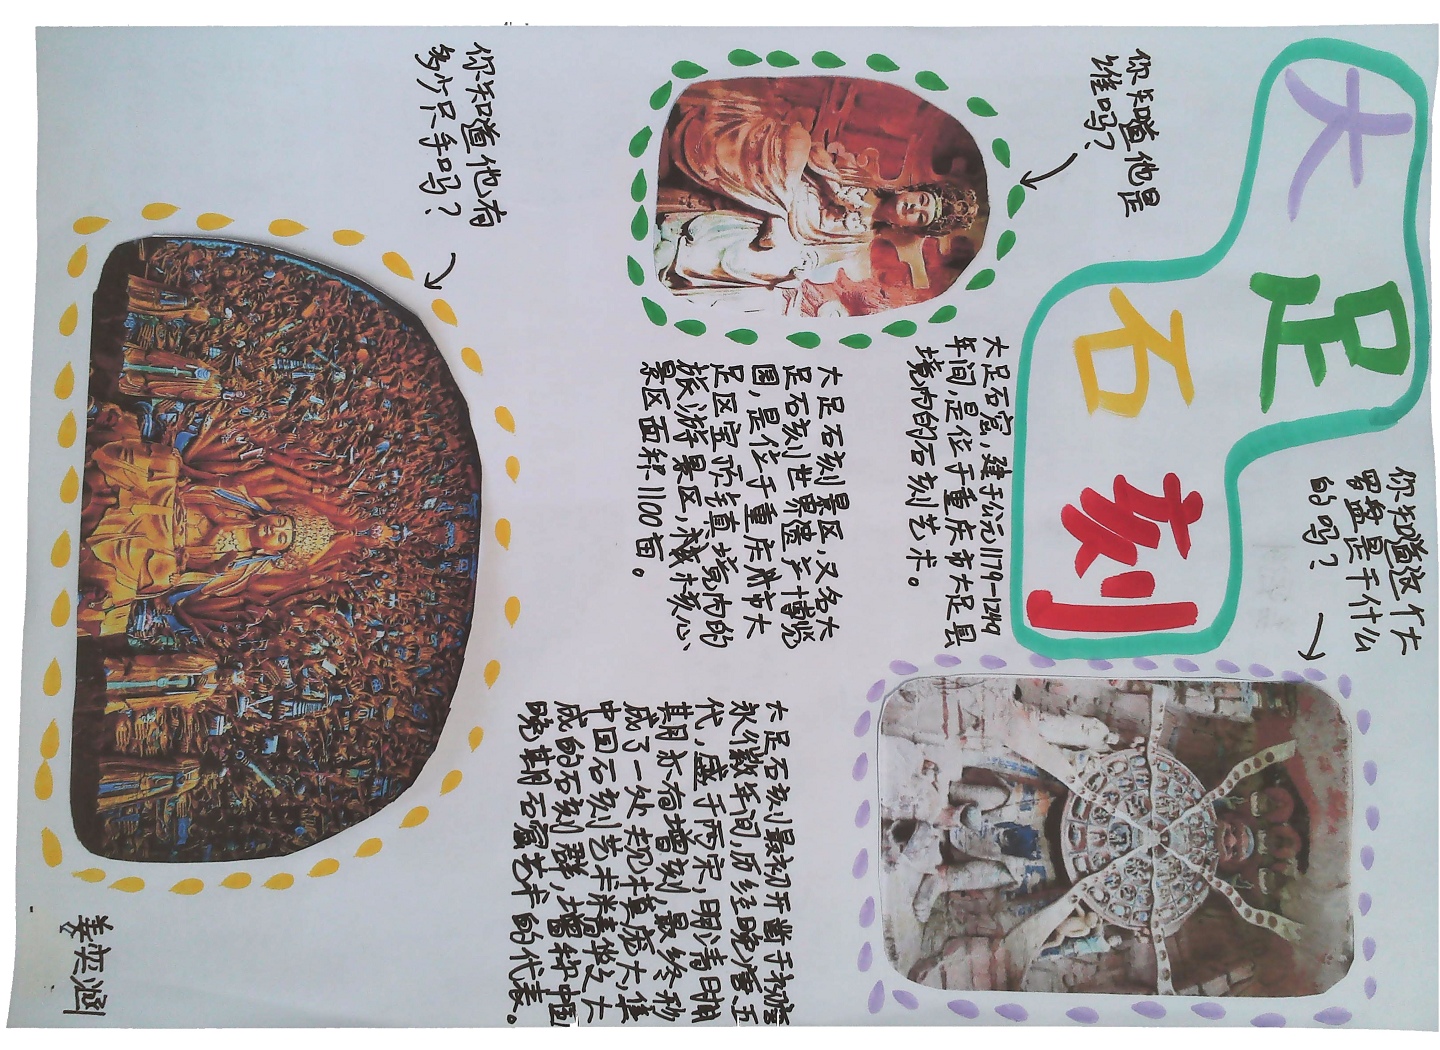 大足
石刻
你知道他是
谁吗?
你知道这个大
罗盘是干什么
的吗?
大足石窟,建于公元1179-1249
年间,是位于重庆市大足县
境内的石刻艺术。
你知道他有
多少只手吗?
大足石刻景区,又名大
足石刻世界遗产博览
园,是位于重庆市大
足区宝顶镇境内的
旅游景区,核心
景区面积1100亩。
大足石刻最初开凿于初唐
永徽年间,历经晚唐、五
代,盛于两宋,明清时
期亦有增刻,最终形
成了一处规模庞大,集
中国石刻艺术精华之大
成的石刻群,增称中国
晚期石窟艺术的代表。
姜奕涵